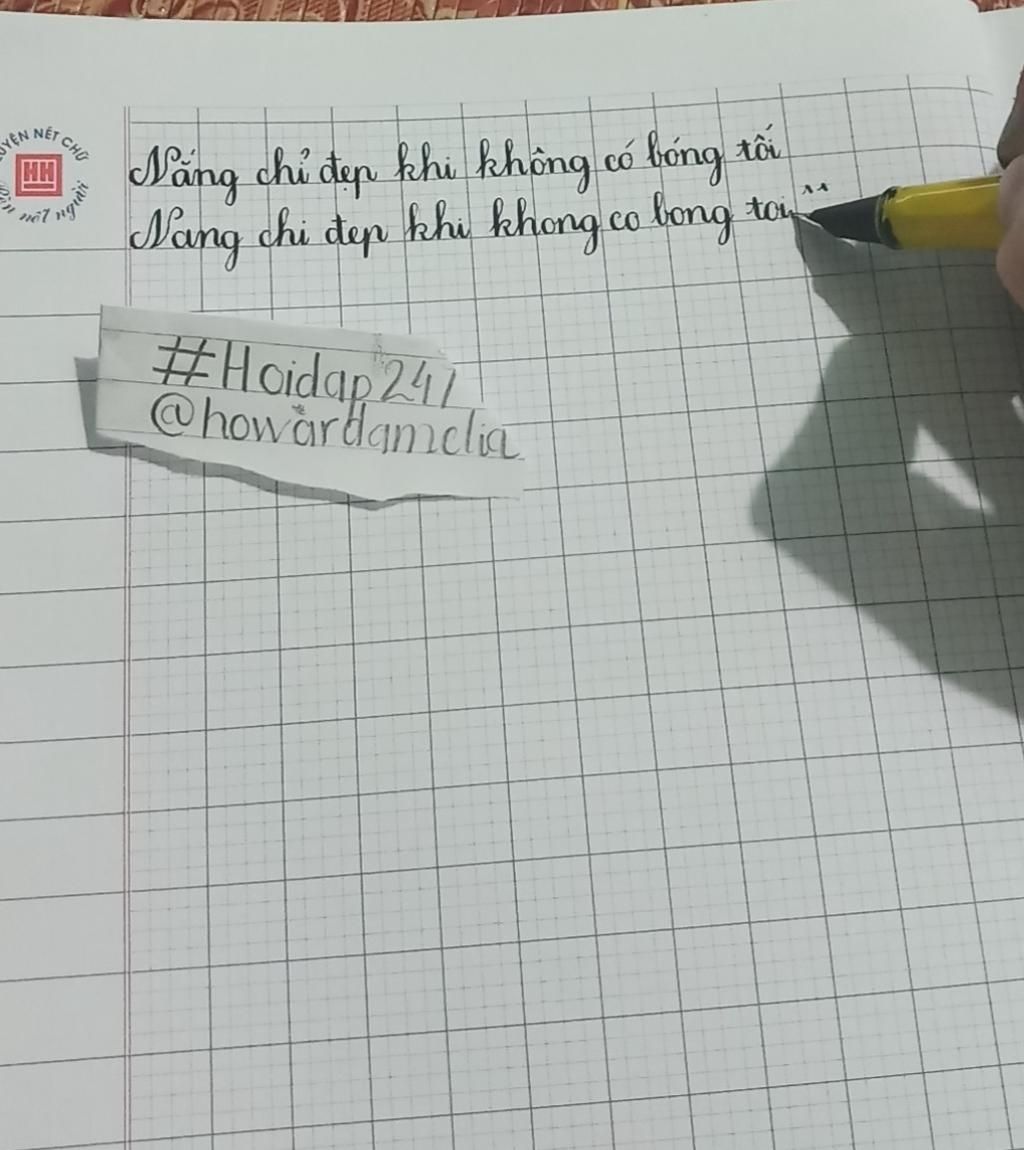 UYỆN NÉT CHỮ
HH
nết người
Nắng chỉ đẹp khi không có bóng tối
Nang chi đep khi khong co bong toi
#Hoidap247
@howardamelia